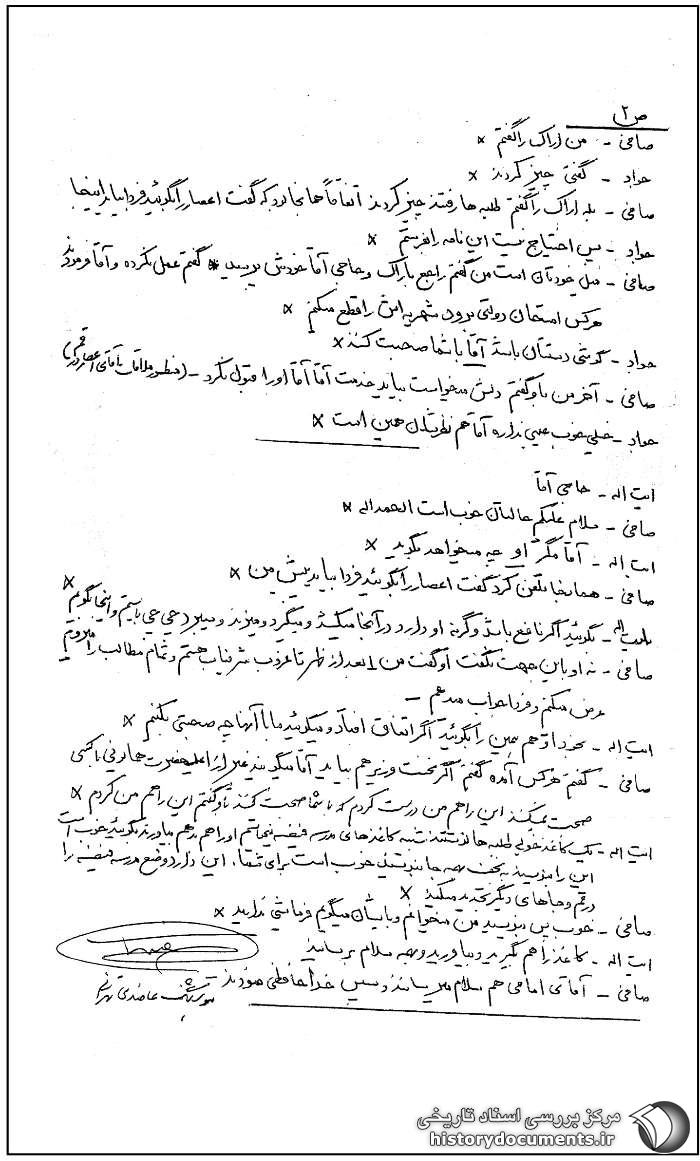 ص ۲
صافی - من اراک را گفتم ×
جواد - گفتی چیز کردند ×
صافی - بله اراک را گفتم طلبه ها رفتند چیز کردند اتفاقاً هانجا بود که گفت اعصار را بگوئید فردا بیاید اینجا
جواد - پس احتیاج نیست این نامه را بفرستم ×
صافی - میل خودتان است من گفتم راجع باراک و حاجی آقا خودش بوسید × گفتم عمل نکرده و آقا فرمودند
هرکس امتحان دولتی برود شهریه اش را قطع میکنم ×
جواد - گوشی دستتان باشد آقا با شما صحبت کنند ×
صافی - آخر من باو گفتم دلش میخواست بیاید خدمت آقا آقا او را قبول نکرد - (منظور ملاقات با آقای در قم)
جواد - خیلی خوب عیبی نداره آقا هم نظرشان همین است ×
آیت اله - حاجی آقا
صافی - سلام علیکم حالتان خوب است الحمداله ×
آیت اله - آقا مگر او چه میخواهد بگوید ×
صافی - همانجا تلفن کرد گفت اعصار را بگوئید فردا بیاید پیش من ×
آیت اله - بگوئید اگر نافع باشد وگرنه او دارد در آنجا میکشد و میگیرد و میزند و میبرد چی چی بایستم و اینجا بگویم ×
صافی - نه او باین جهت نگفت او گفت من ۱ بعد از ظهر تا غروب شرفیاب هستم و تمام مطالب را میروم
عرض میکنم و فردا جواب میدهم -
آیت اله - بخود او هم همین را بگوئید اگر اتفاق افتاد و میگوئید ما با آنها چه صحبتی بکنیم ×
صافی - گفتم هرکس آمده گفتم اگر نخست وزیر هم بیاید آقا میگویند غیر از اعلیحضرت همایونی با کسی
صحبت نمیکنند این را هم من درست کردم که با شما صحبت کنند باو گفتم این را هم من کردم ×
آیت اله - یک کاغذ خوبی طلبه ها نوشتند شبیه کاغذهای مدرسه فیضیه اینجا هستم او را هم بدهم بیاورند بگوئید خوب است
این را بنویسید به نجف بهمه جا بنویسید خوب است برای شما، این دارد وضع مدرسه فیضیه را
در قم و جاهای دیگر تجدید میکنید ×
صافی - خوب پس بدهید من میخوانم و بایشان میگویم فرمایشی ندارید ×
آیت اله - کاغذ را هم بگیرید و بیاورید و بهمه سلام برسانید
صافی - آقای امامی هم سلام میرسانند و سپس خداحافظی نمودند -
مرکز بررسی اسناد تاریخی
historydocuments.ir